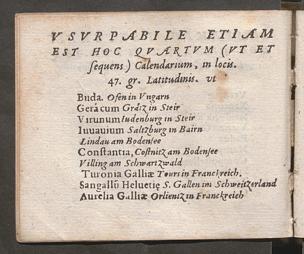 VSVRPABILE ETIAM
EST HOC QVARTVM (VT ET
sequens) Calendarium, in locis.
47. gr. Latitudinis. vt
Buda. Ofen in Vngarn
Gerácum Grätz in Steir
Virunum Iudenburg in Steir
Iuuauium Saltzburg in Bairn
Lindau am Bodensee
Constantia, Costnitz am Bodensee
Villing am Schwartzwald
Turonia Galliæ Tours in Franckreich.
Sangallū Helvetię S. Gallen im Schweitzerland
Aurelia Galliæ Orlientz in Franckreich